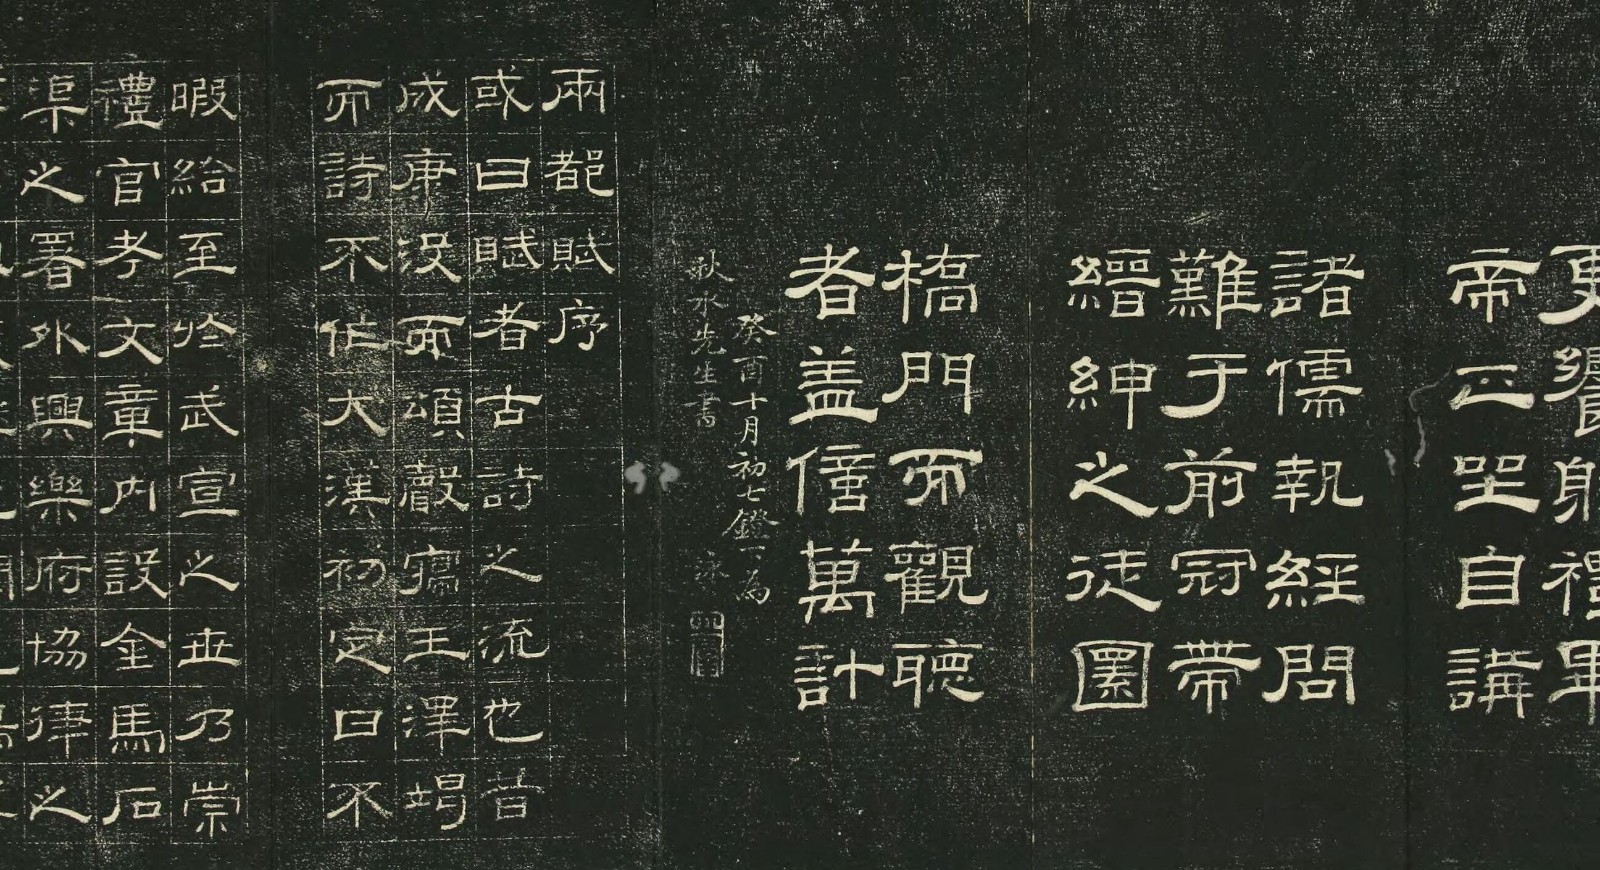 更饗躬禮畢
帝正坐自講
諸儒執經問
難于前冠帶
縉紳之徒圜
橋門而觀聽
者盖億萬計
癸酉十月初七鐙下為
秋水先生書 泳
兩都賦序
或曰賦者古詩之流也昔
成康没而頌聲寢王澤竭
而詩不作大漢初定日不
暇給至於武宣之世乃崇
禮官考文章内設金馬石
渠之署外興樂府協律之